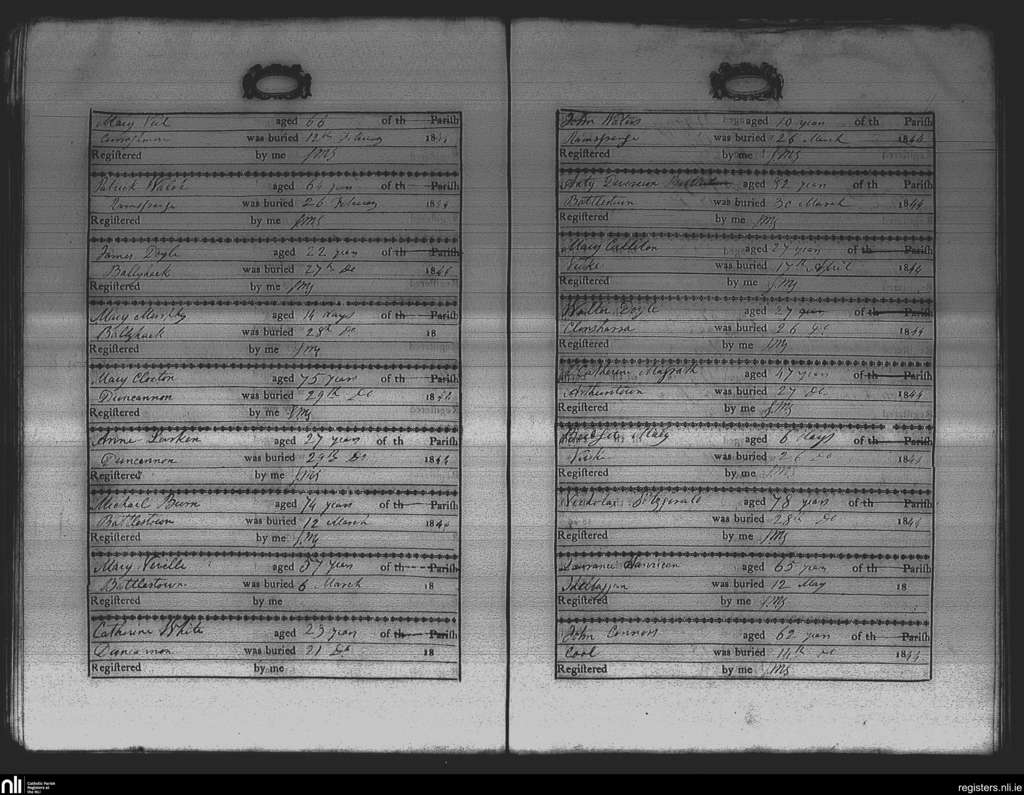 Mary aged 66 of th Parish
was buried 12th February 1844
Registered by me JMG
Patrick Walsh aged 64 years of th Parish
Ramsgrange was buried 26 February 1844
Registered by me JMG
James Doyle aged 22 years of th Parish
Ballyhack was buried 27th Do 1844
Registered by me JMG
Mary Murphy aged 14 days of th Parish
Ballyhack was buried 28th Do 18
Registered by me JMG
Mary Cloxton aged 75 years of th Parish
Duncannon was buried 29th Do 1844
Registered by me JMG
Anne Larken aged 27 years of th Parish
Duncannon was buried 29th Do 1844
Registered by me JMG
Michael Burn aged 74 years of th Parish
Battlestown was buried 12 March 1844
Registered by me JMG
Mary Neville aged 57 years of th Parish
Battlestown was buried 6 March 18
Registered by me
Catherine White aged 23 years of th Parish
Duncannon was buried 21 Do 18
Registered by me
John Waters aged 10 years of th Parish
Ramsgrange was buried 26 March 1844
Registered by me JMG
Anty aged 52 years of th Parish
Battlestown was buried 30 March 1844
Registered by me JMG
Mary Carleton aged 27 years of th Parish
was buried 17th April 1844
Registered by me JMG
Walter Doyle aged 27 years of th Parish
Clonsharra was buried 26 Do 1844
Registered by me JMG
Catherine Magrath aged 47 years of th Parish
Arthurstown was buried 27 Do 1844
Registered by me JMG
aged 6 days of th Parish
was buried 26 Do 1844
Registered by me JMG
Nicholas Fitzgerald aged 78 years of th Parish
was buried 28th Do 1844
Registered by me JMG
Lawrance Harrison aged 65 years of th Parish
was buried 12 May 18
Registered by me JMG
John Connors aged 62 years of th Parish
Cool was buried 14th Do 1844
Registered by me JMG
nli Catholic Parish
Registers at
the NLI
registers.nli.ie